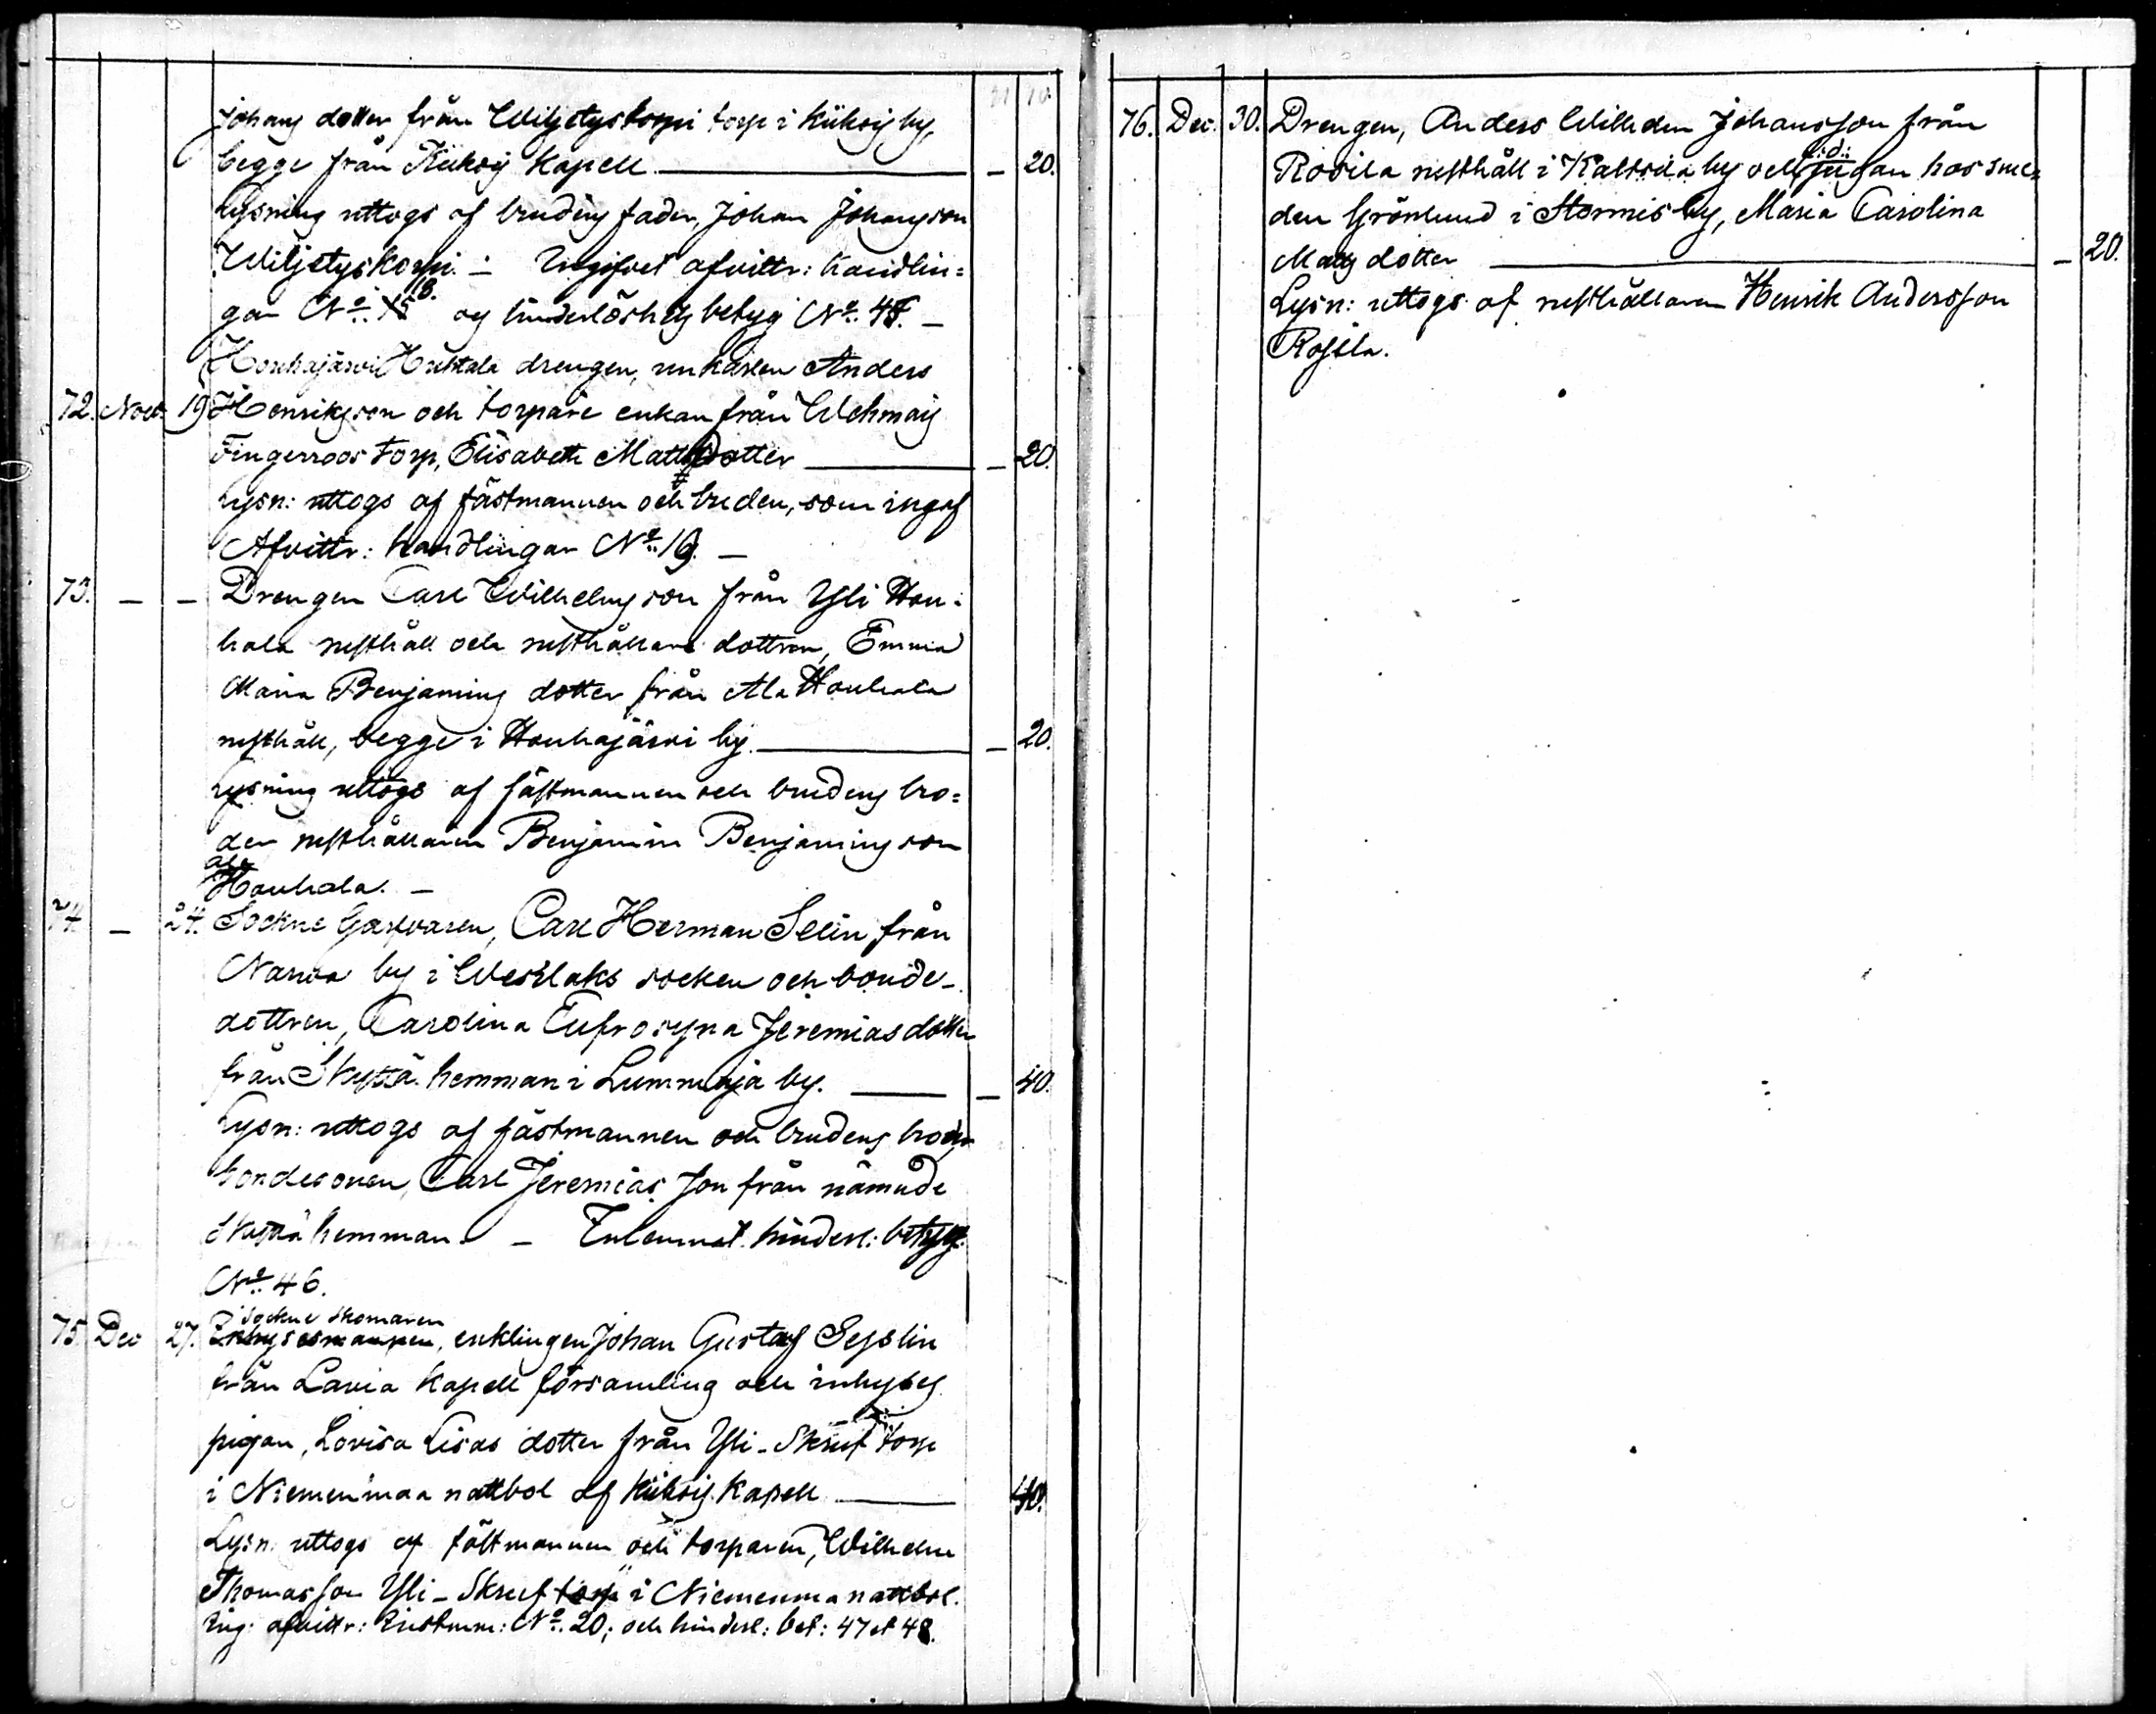 Johans dotter från Wiljetyskorpi torp i Kiikois by,
begge från Kiikois Kapell — 20.
Lysning uttogs af brudens fader, Johan Johansson
Wiljetyskorpi. — Ingifvet afvittr: handlin=
gar N:o 18. og hinderlöshets betyg N:o 45. —
Houhajärvi Huhtala drengen, unkarlen Anders
72. Nov. 19 Henriksson och torpare enkan från Wehmais
Fingerroos torp, Elisabeth Mattsdotter — 20.
Lysn: uttogs af fästmannen och bruden, som ingaf
Afvittr: handlingar N:o 19. —
73. — — Drengen Carl Wilhelmsson från Yli Hou=
hala rusthåll och rusthållare dottren, Emma
Maria Benjamins dotter från Ala Houhala
rusthåll, begge i Houhajärvi by. — 20.
Lysning uttogs af fästmannen och brudens bro=
der rusthållaren Benjamin Benjaminsson
Ala
Houhala. —
74 — 24. Sockne Garfvaren, Carl Herman Selin från
Narva by i Wesilaks socken och bonde-
dottren, Carolina Eufrosyna Jeremias dotter
från Skyttä hemman i Lummaja by. — 40.
Lysn: uttogs af fästmannen och brudens broder
bondesonen, Carl Jeremias son från nämnde
Skyttä hemman. — Inlemnat hinderl: betyg
N:o 46.
Sockne skomaren
75. Dec 27. Inhysesmannen, enklingen Johan Gustaf Seslin
från Lavia Kapell församling och inhyses
pigan, Lovisa Lisas dotter från Yli-Skruf torp
i Niemenmaa nattbol af Kiikois Kapell — 40.
Lysn: uttogs af fästmannen och torparen, Wilhelm
Thomasson Yli-Skruf torp i Niemenma nattbol.
Ing: afvittr: N:o 20; och hinderl: bet: 47 et 48.
76. Dec. 30. Drengen, Anders Wilhelm Johansson från
Rosila rusthåll i Kaltsila by och pigan hos sme=
den Grönlund i Stormis by, Maria Carolina
Matts dotter — 20.
Lysn: uttogs af rusthållaren Henrik Andersson
Rosila.